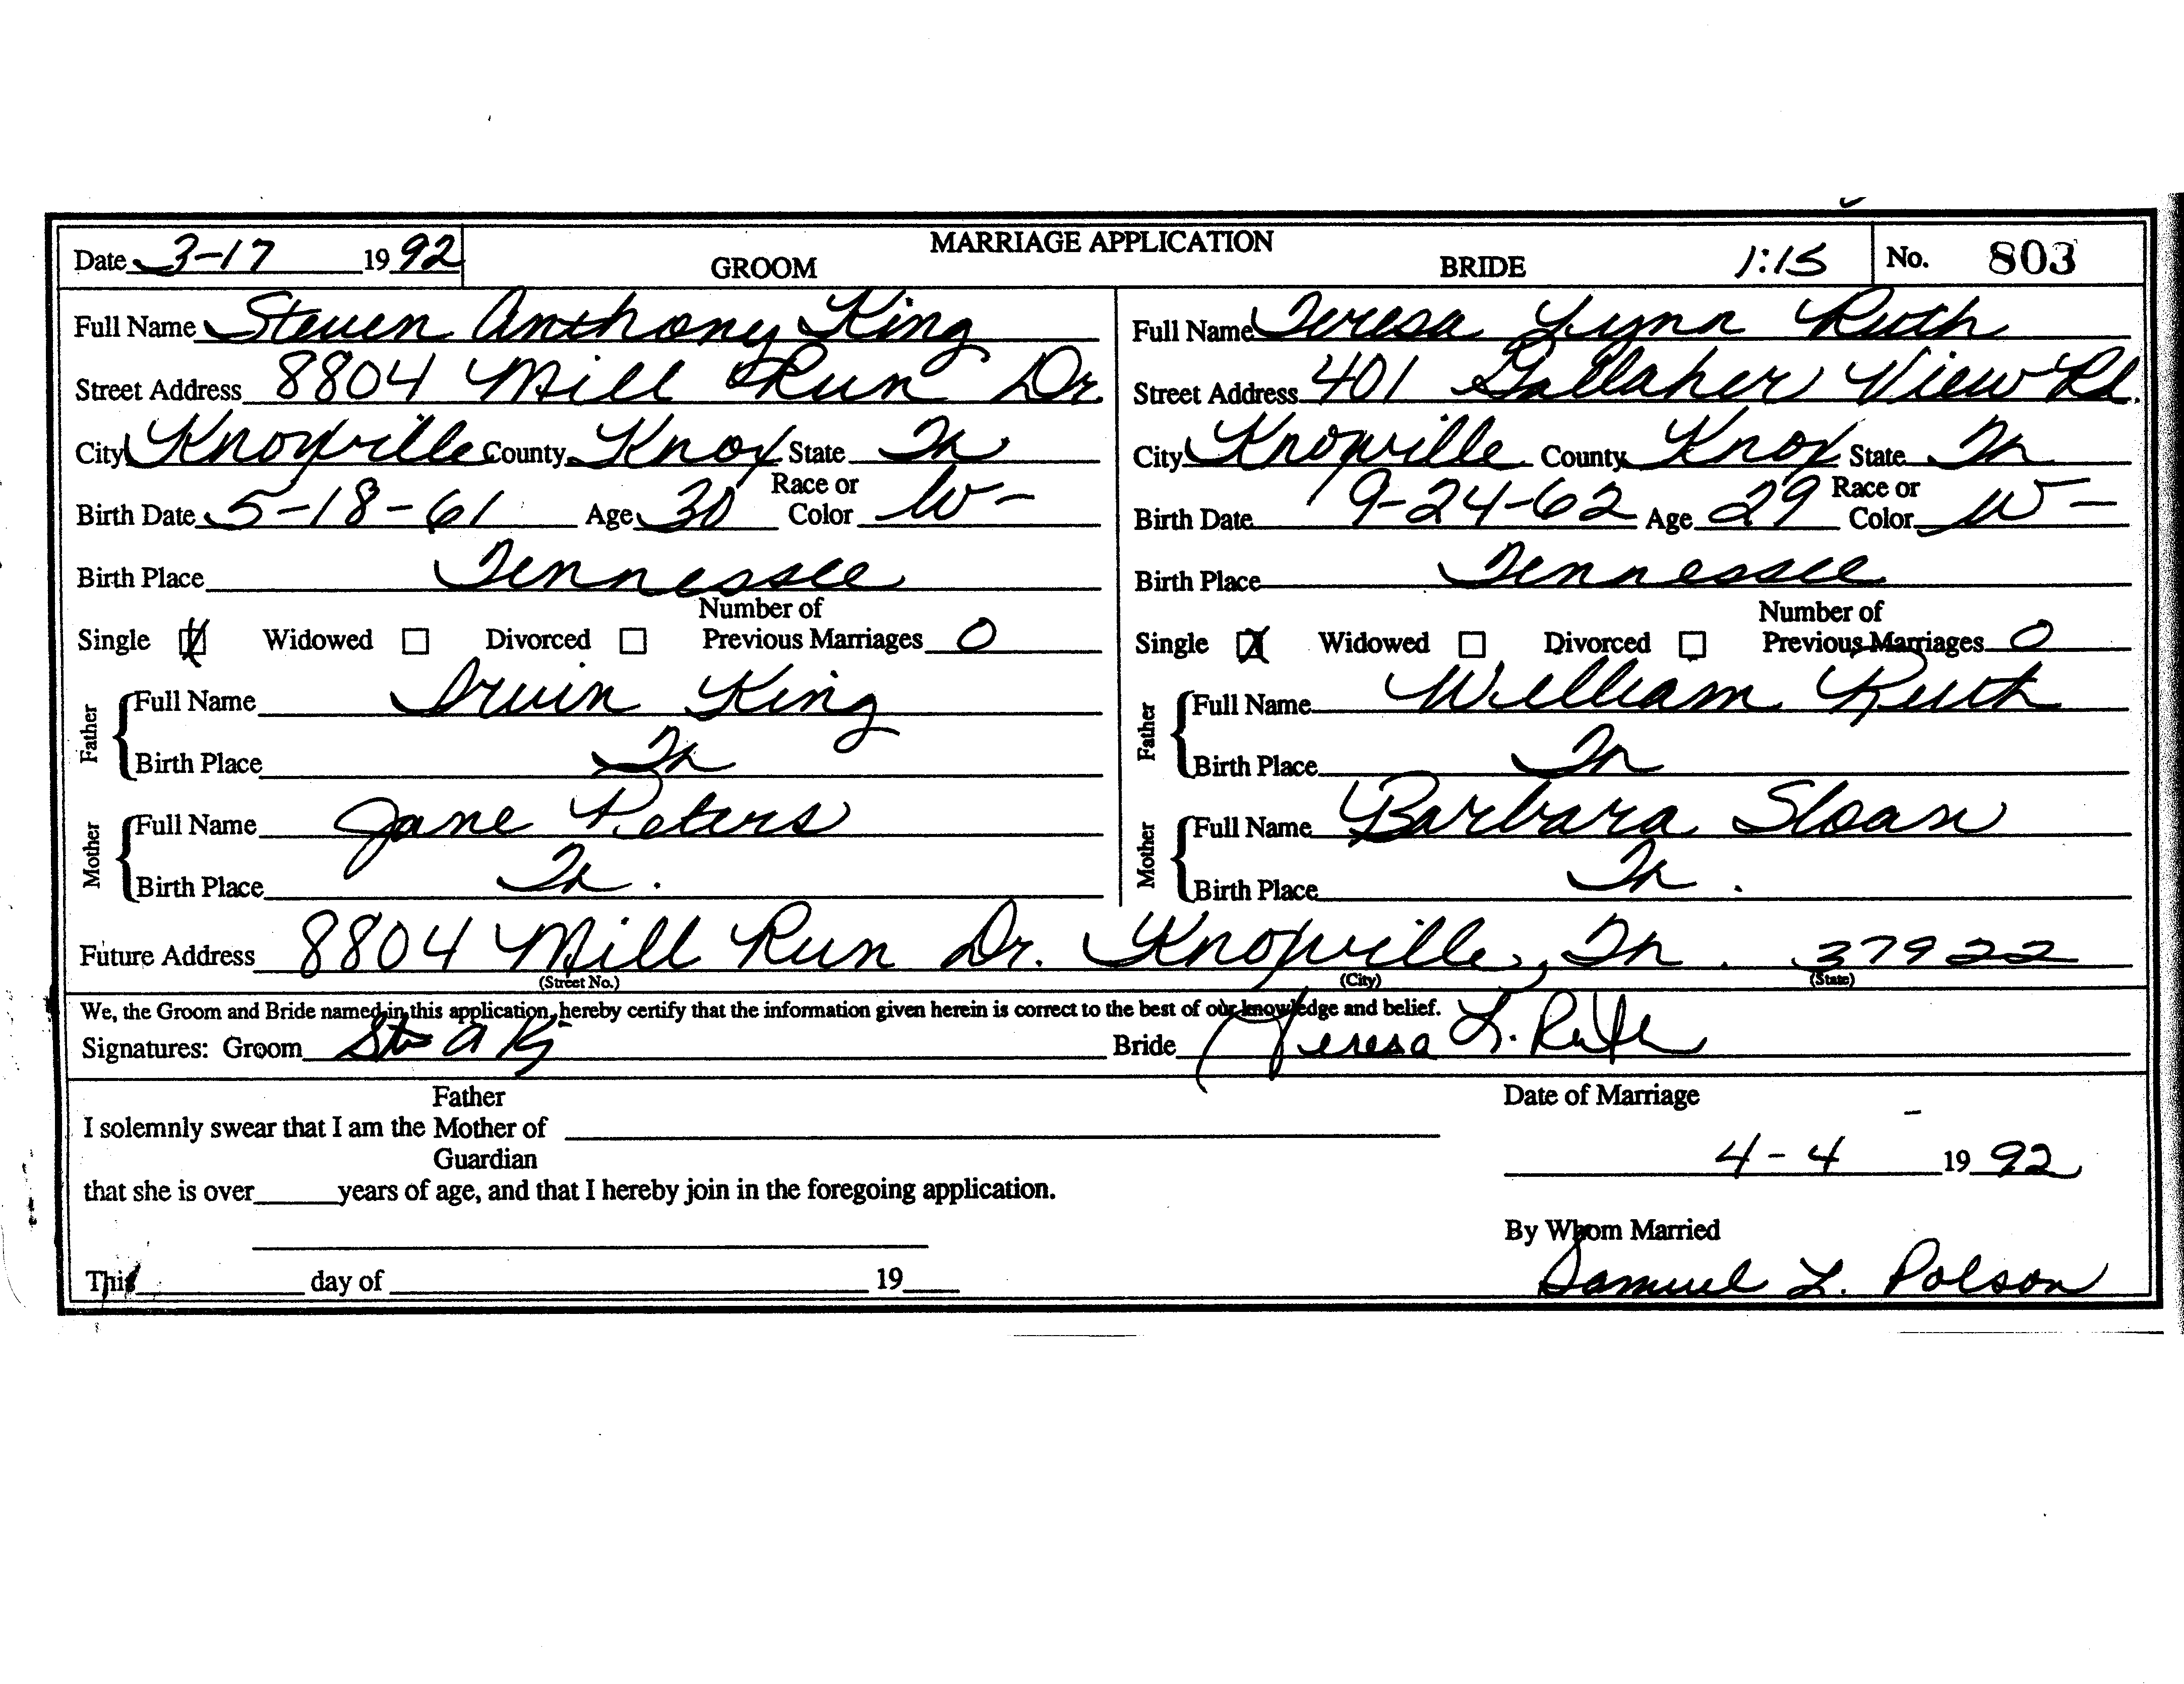 MARRIAGE APPLICATION
Date 3-17 1992 GROOM BRIDE 1:15 No. 803
Full Name Steven Anthony King Full Name Teresa Lynn Ruth
Street Address 8804 Mill Run Dr. Street Address 401 Gallaher View Rd.
City Knoxville County Knox State Tn City Knoxville County Knox State Tn
Birth Date 5-18-61 Age 30 Race or Color W- Birth Date 9-24-62 Age 29 Race or Color W-
Birth Place Tennessee Birth Place Tennessee
Single X Widowed Divorced Number of Previous Marriages 0 Single X Widowed Divorced Number of Previous Marriages 0
Father Full Name Irvin King Father Full Name William Ruth
Birth Place Tn Birth Place Tn
Mother Full Name Jane Peters Mother Full Name Barbara Sloan
Birth Place Tn. Birth Place Tn.
Future Address 8804 Mill Run Dr. Knoxville, Tn. 37922
(Street No.) (City) (State)
We, the Groom and Bride named in this application, hereby certify that the information given herein is correct to the best of our knowledge and belief.
Signatures: Groom Bride Teresa L. Ruth
Father Date of Marriage
I solemnly swear that I am the Mother of
Guardian 4-4 1992
that she is over years of age, and that I hereby join in the foregoing application.
By Whom Married
This day of 19 Samuel L. Polson